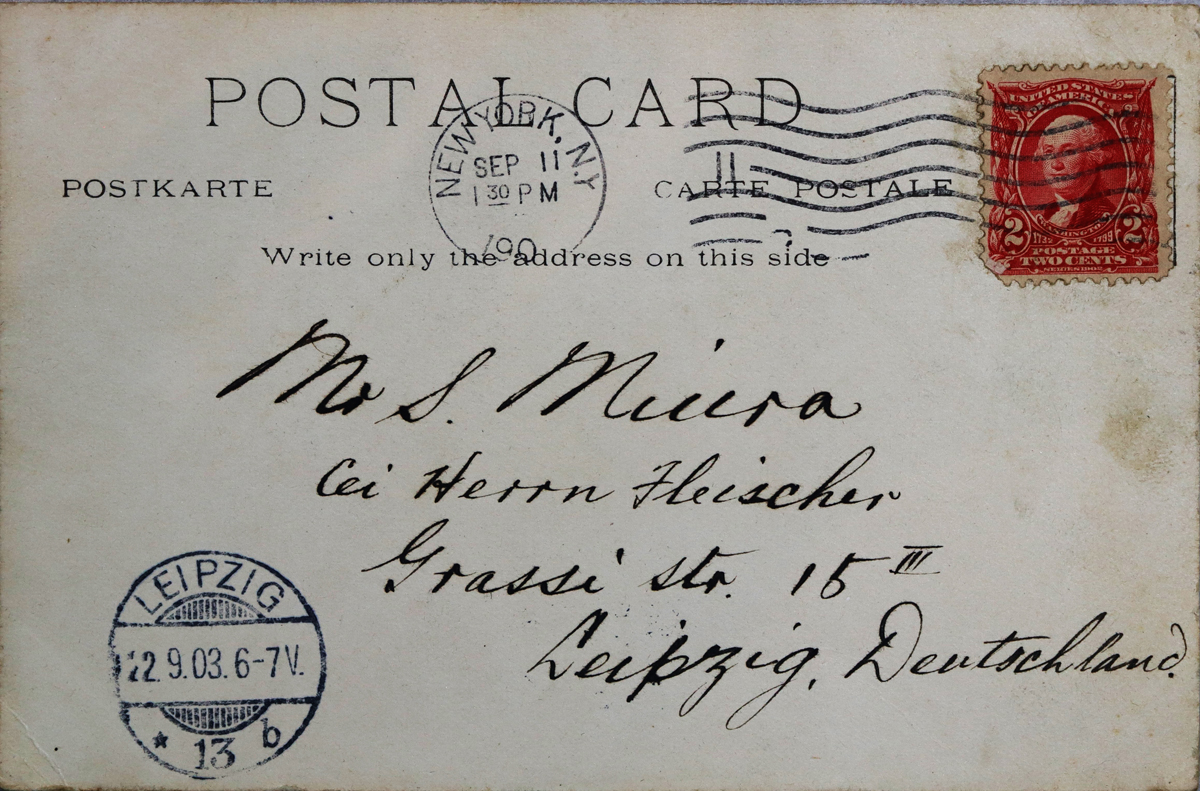 POSTAL CARD
NEW YORK, N.Y.
SEP 11
1 30 PM
190
POSTKARTE
CARTE POSTALE
Write only the address on this side
UNITED STATES
OF AMERICA
WASHINGTON
2 2
1732 1799
POSTAGE
TWO CENTS
SERIES 1902
Mr S. Miura
bei Herrn Fleischer
Grassi str. 15 III
Leipzig, Deutschland.
LEIPZIG
22.9.03.6-7V.
* 13 b